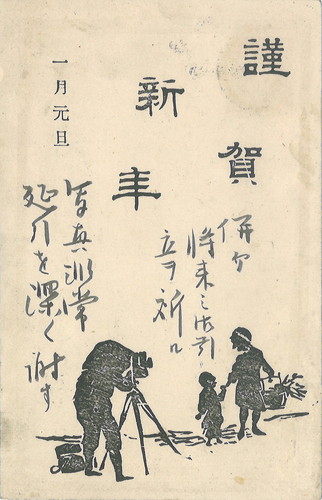 謹賀
新年
一月元旦
併テ
将来之御引
立ヲ祈ル
写真非常
延引を深く謝す